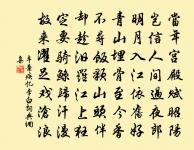 當年宮殿賦昭陽
豈信人間過夜郎
明月入江依舊好
青山埋骨至今香
不尋飯顆山頭伴
卻趁汨羅江上狂
定要騎鯨歸汗漫
故來濯足戲滄浪
辛棄疾憶李白